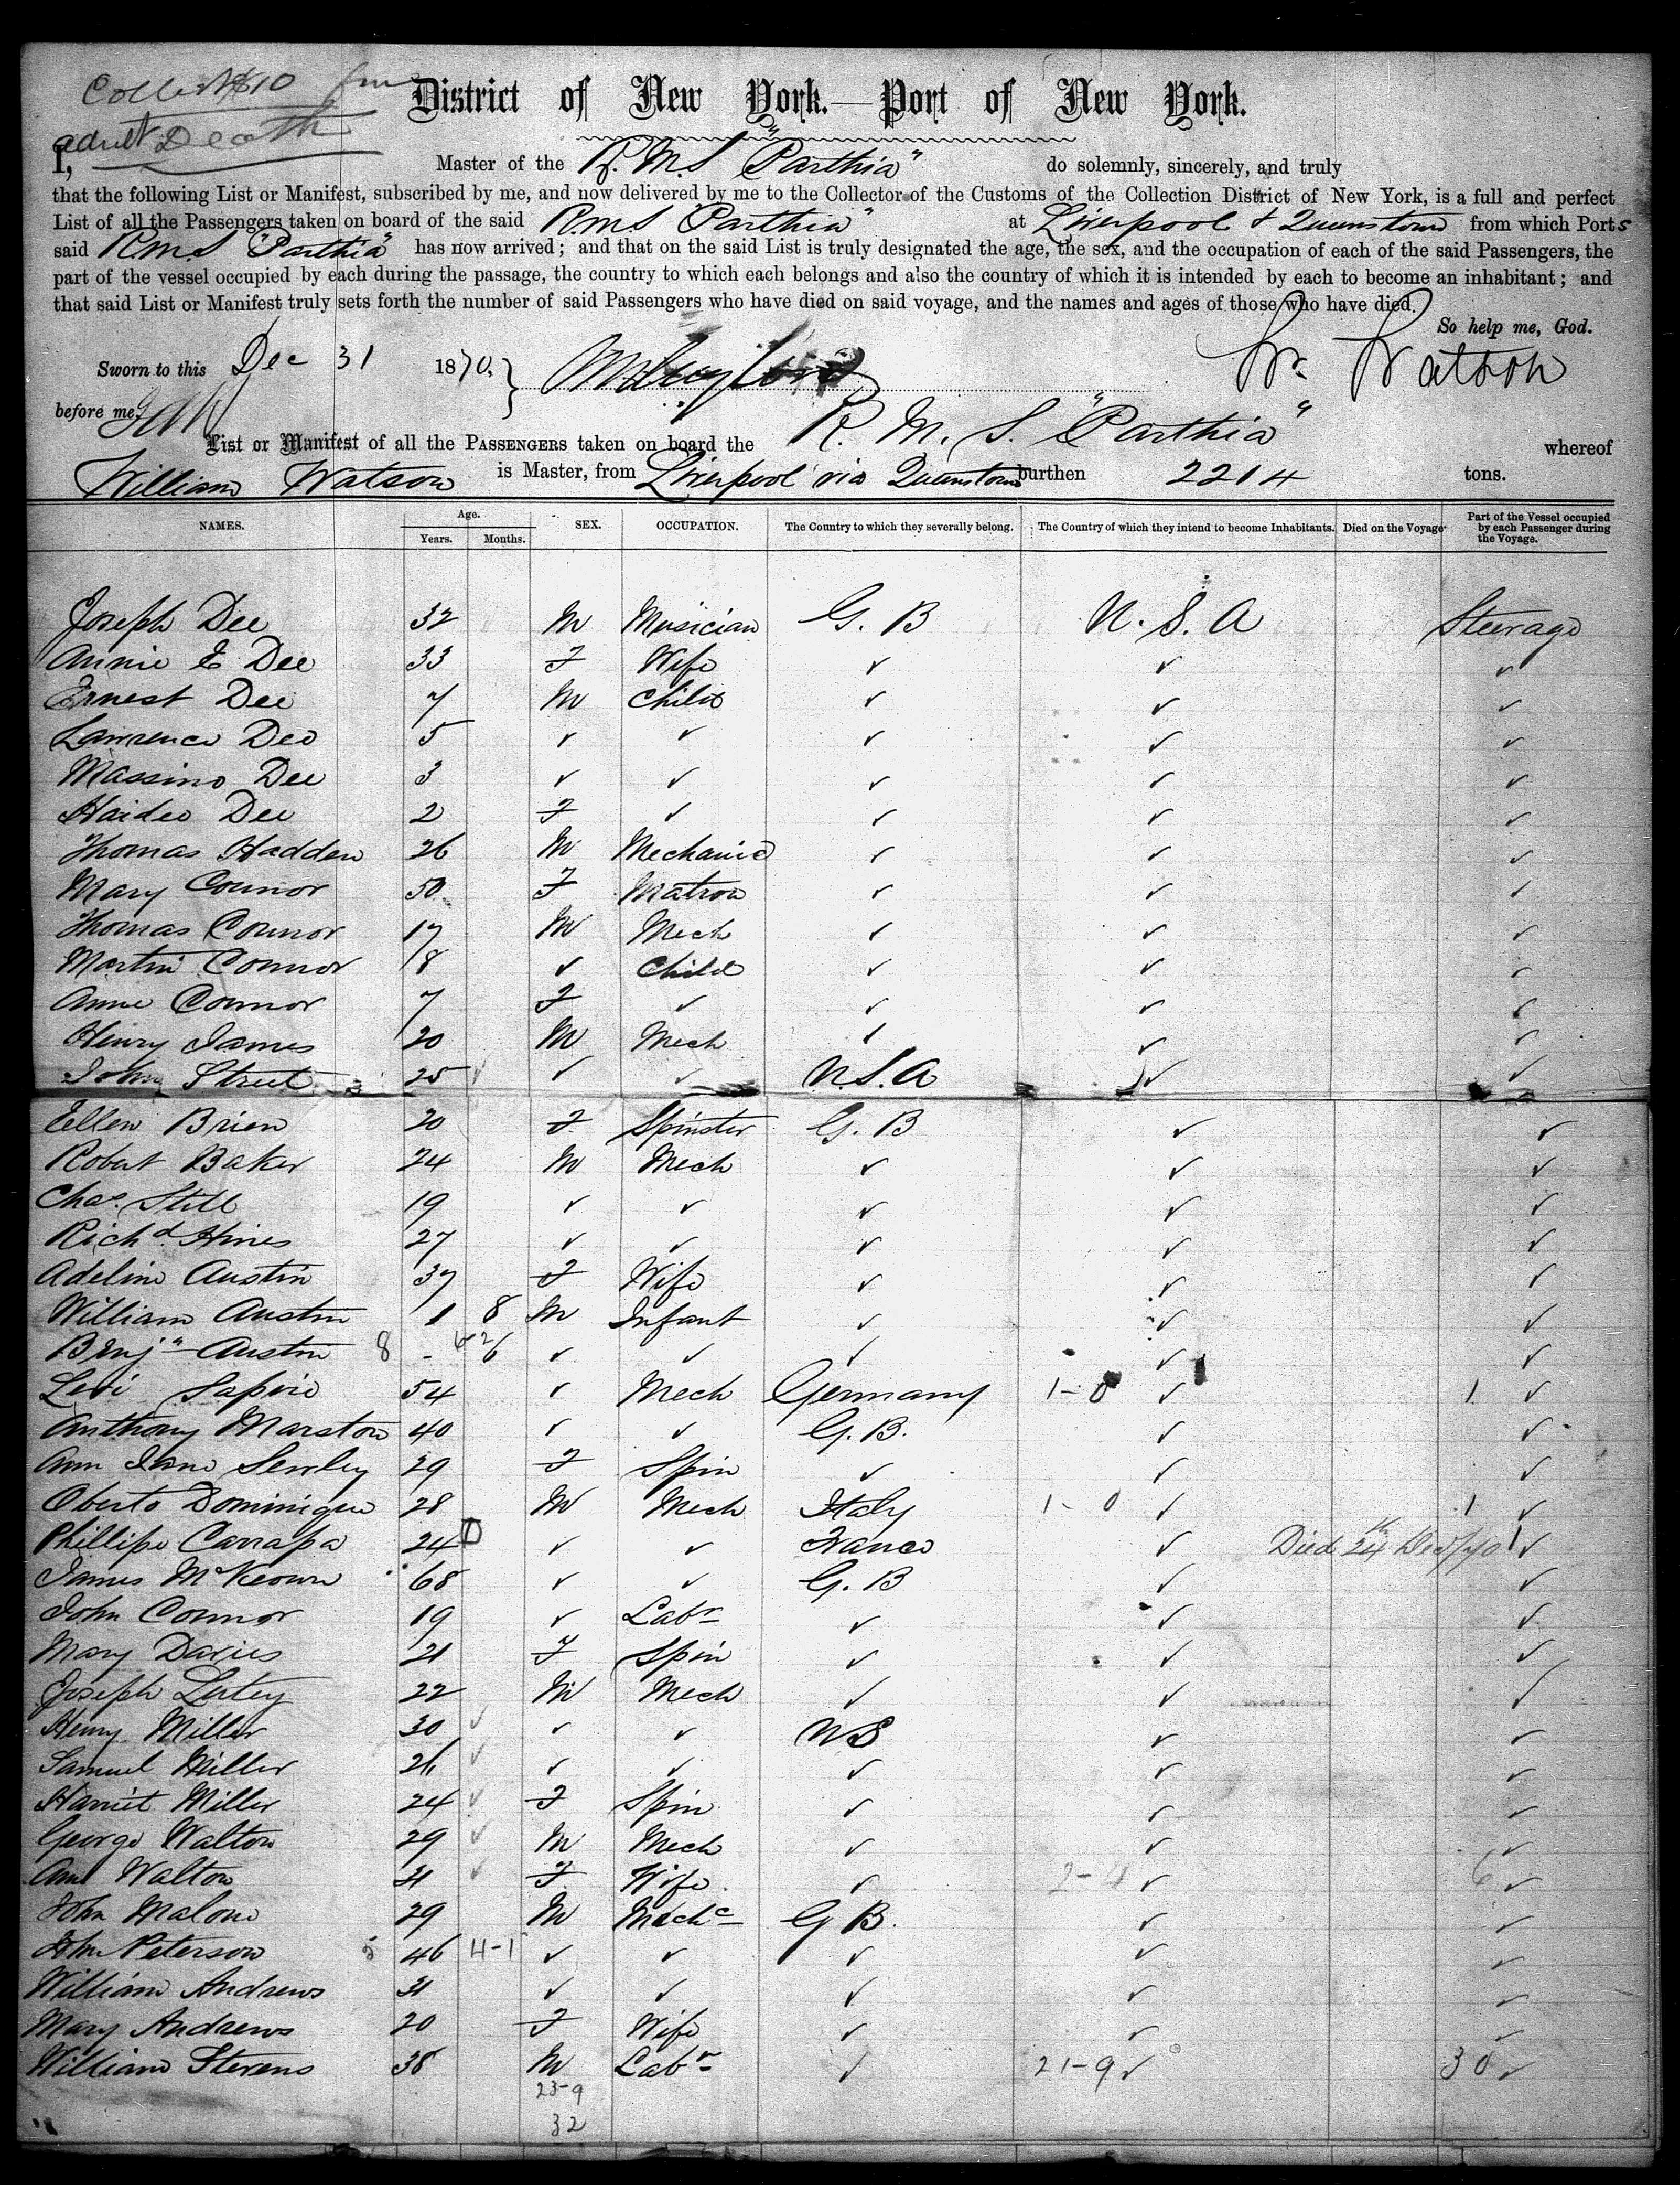 Collect $10 for
adult Death
District of New York.—Port of New York.
I, Master of the R.M.S "Parthia" do solemnly, sincerely, and truly
that the following List or Manifest, subscribed by me, and now delivered by me to the Collector of the Customs of the Collection District of New York, is a full and perfect
List of all the Passengers taken on board of the said RMS "Parthia" at Liverpool & Queenstown from which Ports
said R.M.S "Parthia" has now arrived; and that on the said List is truly designated the age, the sex, and the occupation of each of the said Passengers, the
part of the vessel occupied by each during the passage, the country to which each belongs and also the country of which it is intended by each to become an inhabitant; and
that said List or Manifest truly sets forth the number of said Passengers who have died on said voyage, and the names and ages of those who have died.
So help me, God.
Sworn to this Dec 31 1870, Wm Watson
before me,
List or Manifest of all the PASSENGERS taken on board the R. M. S. "Parthia" whereof
William Watson is Master, from Liverpool via Queenstown burthen 2214 tons.
NAMES. Age. Years. Months. SEX. OCCUPATION. The Country to which they severally belong. The Country of which they intend to become Inhabitants. Died on the Voyage. Part of the Vessel occupied by each Passenger during the Voyage.
Joseph Dee 32 M Musician G. B U. S. A Steerage
Annie E Dee 33 F Wife ✓ ✓ ✓
Ernest Dee 7 M Child ✓ ✓ ✓
Lawrence Dee 5 ✓ ✓ ✓ ✓ ✓
Massino Dee 3 ✓ ✓ ✓ ✓ ✓
Haidee Dee 2 F ✓ ✓ ✓ ✓
Thomas Hadden 26 M Mechanic ✓ ✓ ✓
Mary Connor 50 F Matron ✓ ✓ ✓
Thomas Connor 17 M Mech ✓ ✓ ✓
Martin Connor 8 ✓ Child ✓ ✓ ✓
Anne Connor 7 F ✓ ✓ ✓ ✓
Henry James 20 M Mech ✓ ✓ ✓
John Street 25 ✓ ✓ ✓ U.S.A ✓ ✓
Ellen Brien 20 F Spinster G. B ✓ ✓
Robert Baker 24 M Mech ✓ ✓ ✓
Chas. Still 19 ✓ ✓ ✓ ✓ ✓
Richd Hines 27 ✓ ✓ ✓ ✓ ✓
Adeline Austin 37 F Wife ✓ ✓ ✓
William Austin 1 8 M Infant ✓ ✓ ✓
Benjn Austin 8 - 6 ✓ ✓ ✓ ✓ ✓
Levi Sapiro 54 ✓ Mech Germany 1-0 ✓ 1 ✓
Anthony Marston 40 ✓ ✓ G. B. ✓ ✓
Ann Jane Senley 29 F Spin ✓ ✓ ✓
Oberto Dominique 28 M Mech Italy 1-0 ✓ 1 ✓
Phillipe Carrapa 24 ✓ ✓ France ✓ Died 24th Dec/70 1 ✓
James McKeown 68 ✓ ✓ G. B ✓ ✓
John Connor 19 ✓ Labr ✓ ✓ ✓
Mary Davies 21 F Spin ✓ ✓ ✓
Joseph Lutey 22 M Mech ✓ ✓ ✓
Henry Miller 30 ✓ ✓ ✓ US ✓ ✓
Samuel Miller 26 ✓ ✓ ✓ ✓ ✓ ✓
Harriet Miller 24 ✓ F Spin ✓ ✓ ✓
George Walton 29 ✓ M Mech ✓ ✓ ✓
Ann Walton 21 ✓ F Wife ✓ 2-4 ✓ 6 ✓
John Malone 29 M Mechc G B. ✓ ✓
John Peterson 46 4-1 ✓ ✓ ✓ ✓ ✓
William Andrews 21 ✓ ✓ ✓ ✓ ✓
Mary Andrews 20 F Wife ✓ ✓ ✓
William Stevens 38 M Labr ✓ 21-9 ✓ 30 ✓
23-9
32